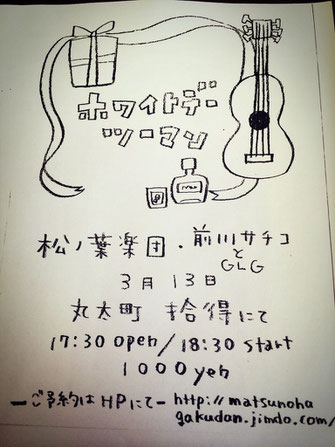 ホワイトデー
ツーマン
松ノ葉楽団・前川サチコ
と
GLG
3月13日
丸太町 拾得にて
17:30 open/18:30 start
1000 yen
ーご予約はHPにてー http://matsunoha
gakudan.jimdo.com/